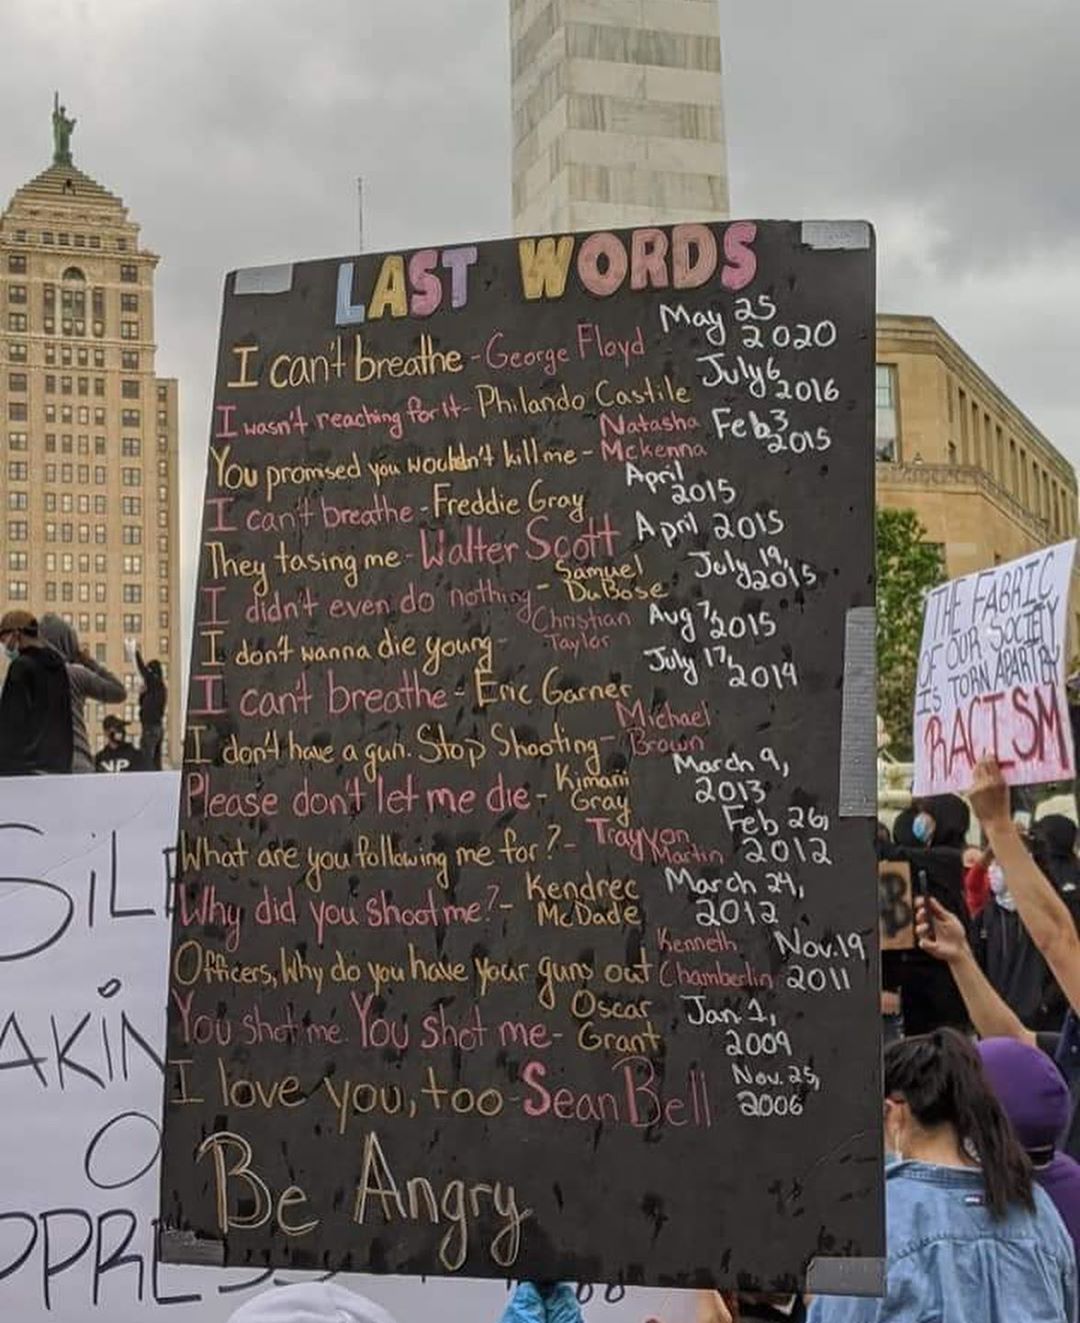 LAST WORDS
I can't breathe - George Floyd May 25 2020
I wasn't reaching for it - Philando Castile July 6 2016
You promised you wouldn't kill me - Natasha Mckenna Feb 3 2015
I can't breathe - Freddie Gray April 2015
They tasing me - Walter Scott April 2015
I didn't even do nothing - Samuel DuBose July 19, 2015
I don't wanna die young - Christian Taylor Aug 7, 2015
I can't breathe - Eric Garner July 17, 2014
I don't have a gun. Stop Shooting - Michael Brown
Please don't let me die - Kimani Gray March 9, 2013
What are you following me for? - Trayvon Martin Feb 26, 2012
Why did you shoot me? - Kendrec McDade March 24, 2012
Officers, Why do you have your guns out Kenneth Chamberlin Nov. 19 2011
You shot me. You shot me - Oscar Grant Jan. 1, 2009
I love you, too - Sean Bell Nov. 25, 2006
Be Angry
THE FABRIC
OF OUR SOCIETY
IS TORN APART BY
RACISM
SiL
AKIN
O
PPRESS